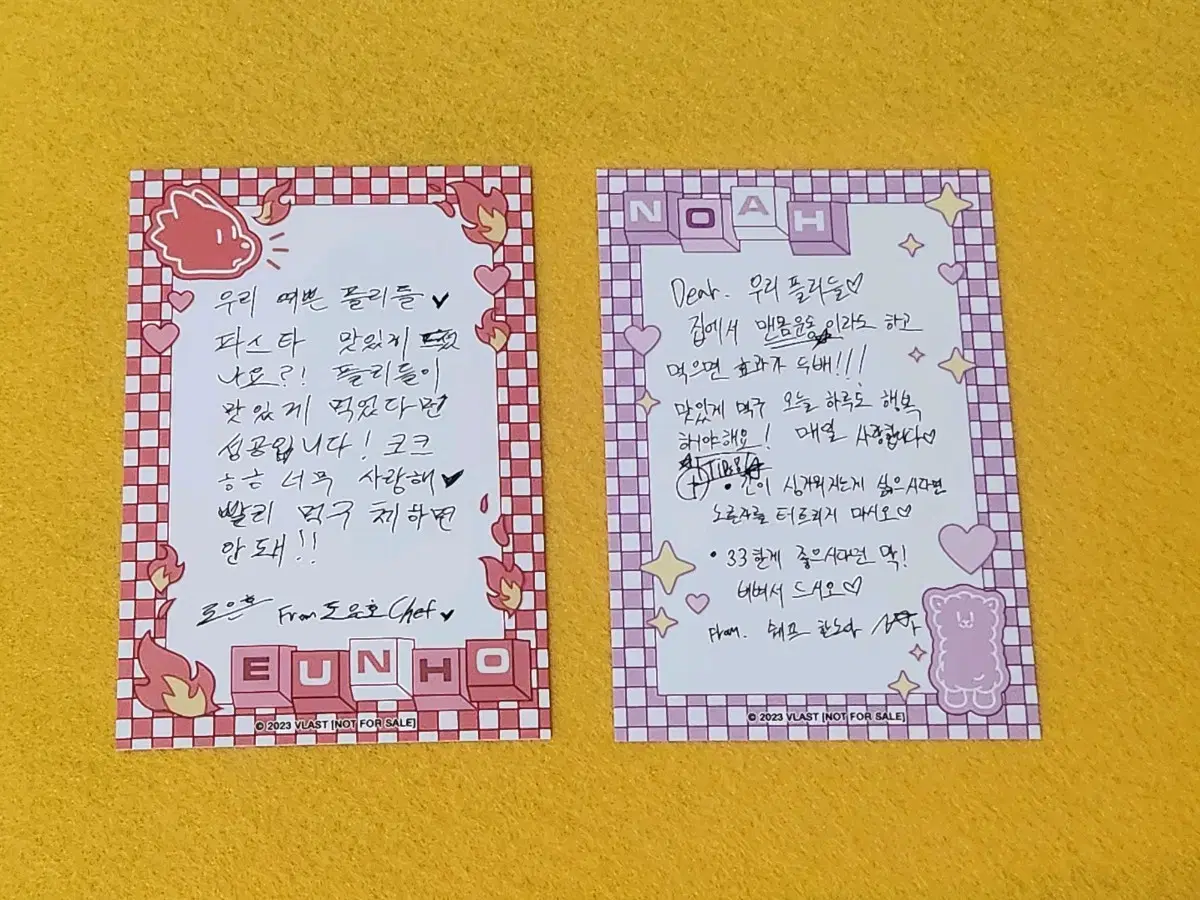 우리 예쁜 플리들
파스타 맛있게 드셨
나요?! 플리들이
맛있게 먹었다면
성공입니다! 코크
ㅎㅎ 너무 사랑해
빨리 먹구 체하면
안 돼!!
From 도은호 Chef
EUNHO
© 2023 VLAST [NOT FOR SALE]
NOAH
Dear. 우리 플리들♡
집에서 맨몸운동이라도 하고
먹으면 효과가 두배!!!
맛있게 먹구 오늘 하루도 행복
해야해요! 매일 사랑합니다♡
TIP
• 간이 싱거워지는게 싫으시다면
노른자를 터트리지 마시오♡
• 33한게 좋으시다면 막!
비벼서 드시오♡
From. 쉐프 한노아
© 2023 VLAST [NOT FOR SALE]